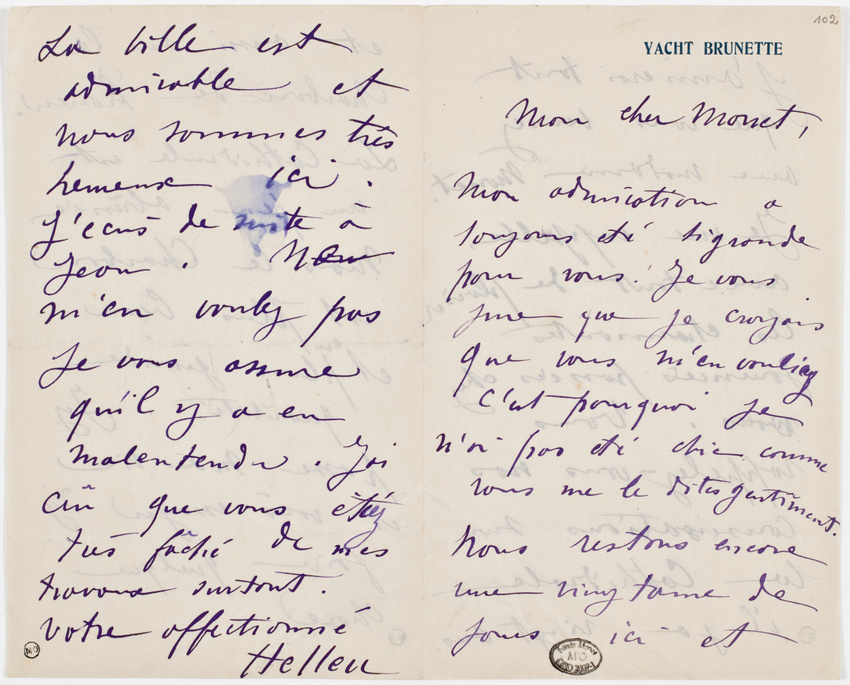 102
YACHT BRUNETTE
Mon cher Monet,
Mon admiration a
toujours été si grande
pour vous! Je vous
jure que je croyais
que vous m'en vouliez
c'est pourquoi je
n'ai pas été chic comme
vous me le dites gentiment.
Nous restons encore
une vingtaine de
jours ici et
La ville est
admirable et
nous sommes très
heureux ici.
J'écris de suite à
Jean. Ne
m'en voulez pas
je vous assure
qu'il y a eu
malentendu. J'ai
crû que vous étiez
très fâché de mes
travaux surtout.
votre affectionné
Helleu
MO